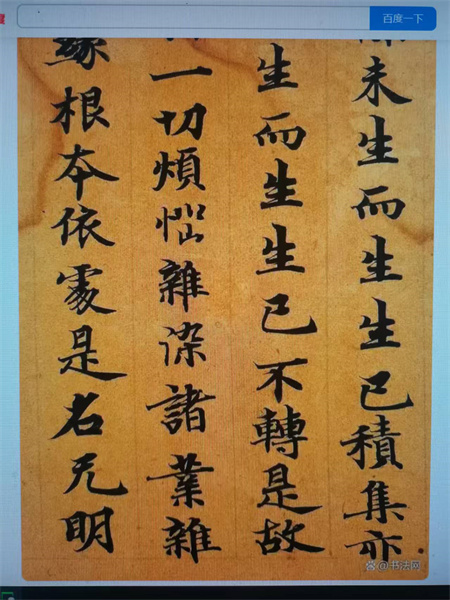 百度一下
未生而生生已積集亦
生而生生已不轉是故
一切煩惱雜染諸業雜
緣根本依處是名无明
@书法网